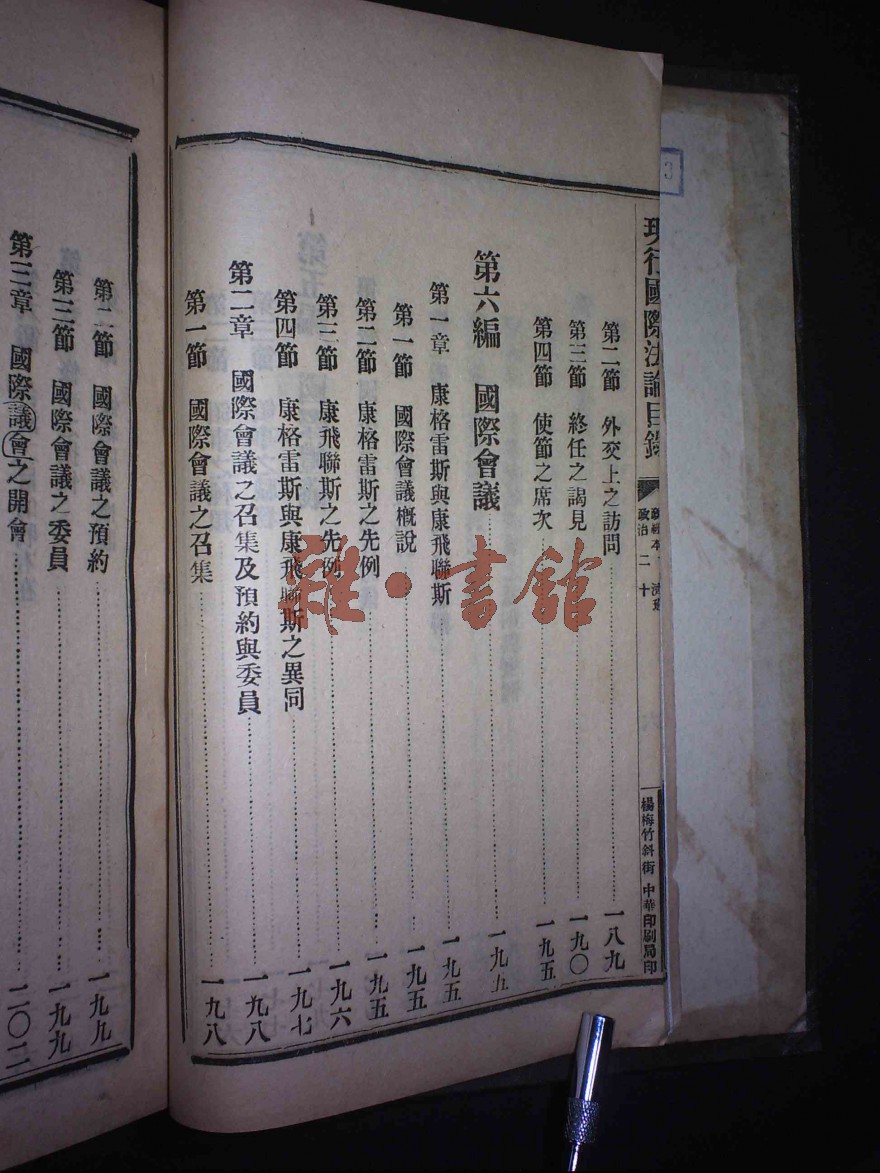 現行國際法論目錄
政治 二 十
楊梅竹斜街 中華印刷局印
第二節 外交上之訪問……一八九
第三節 終任之謁見……一九〇
第四節 使節之席次……一九五
第六編 國際會議……一九五
第一章 康格雷斯與康飛聯斯……一九五
第一節 國際會議概說……一九五
第二節 康格雷斯之先例……一九五
第三節 康飛聯斯之先例……一九六
第四節 康格雷斯與康飛聯斯之異同……一九七
第二章 國際會議之召集及預約與委員……一九八
第一節 國際會議之召集……一九八
第二節 國際會議之預約……一九九
第三節 國際會議之委員……一九九
第三章 國際議會之開會……二〇二
雜·書館
3